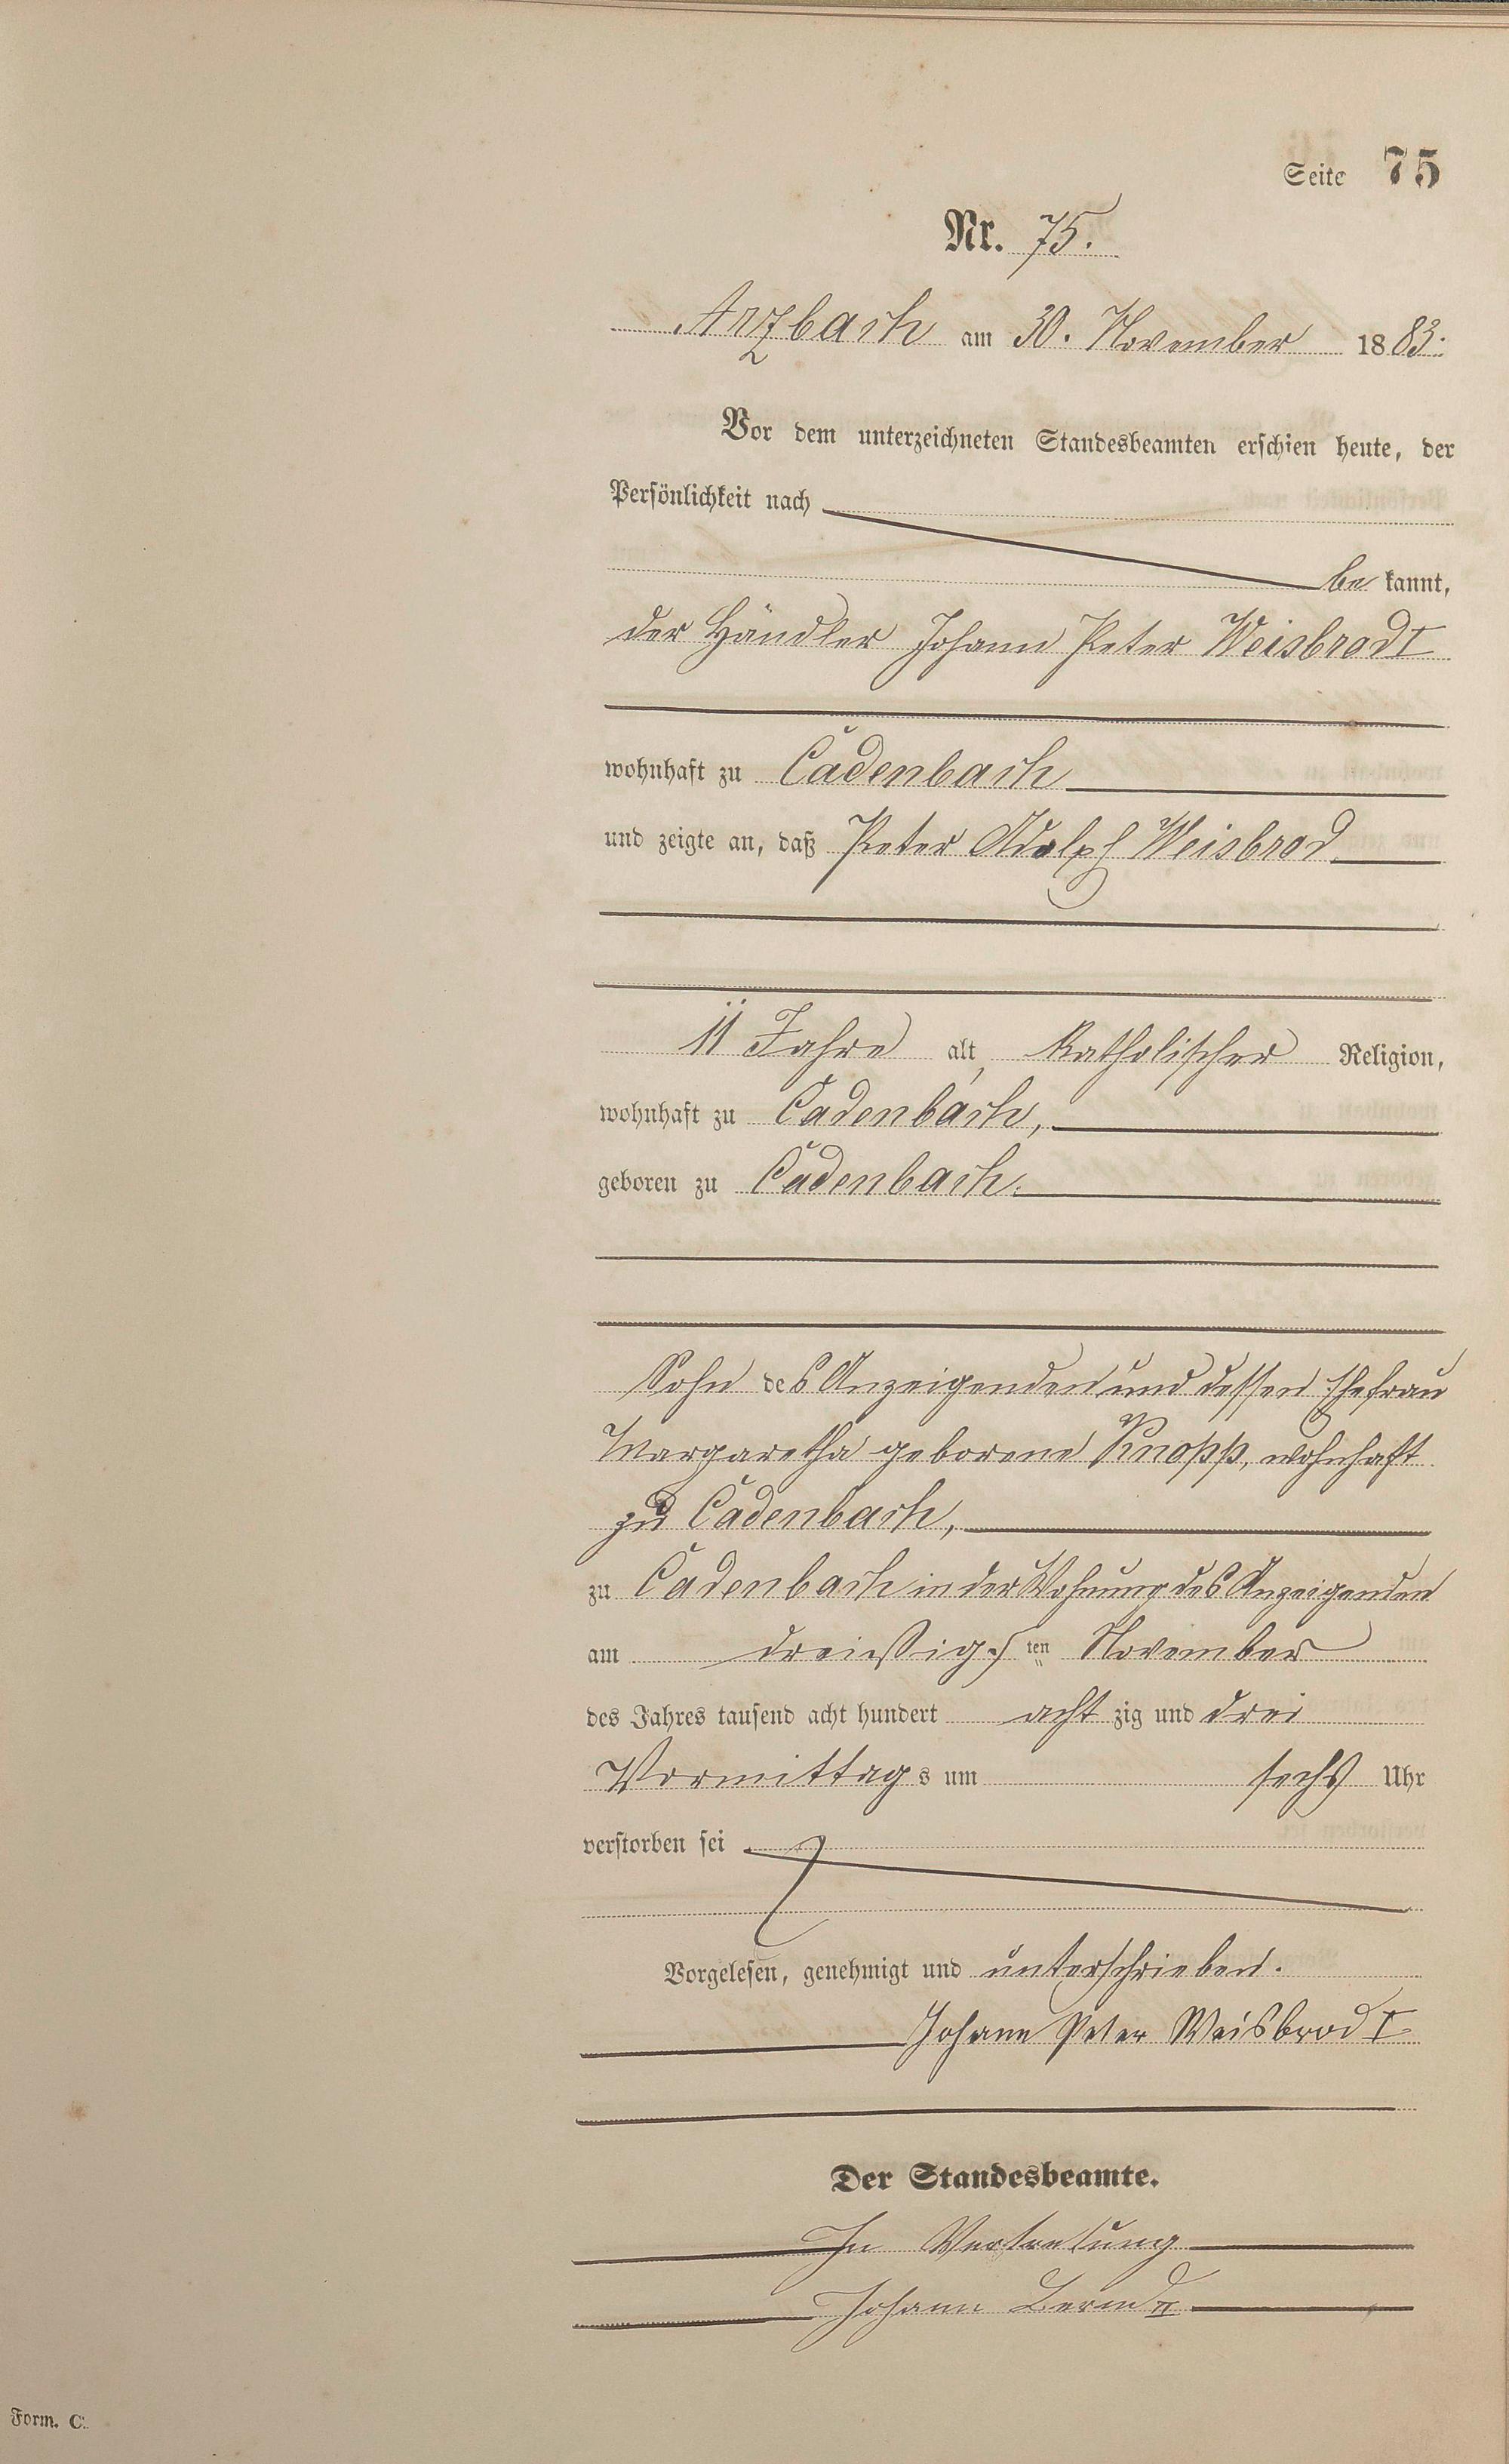 Seite 75
Nr. 75.
Arzbach am 30. November 1883.
Vor dem unterzeichneten Standesbeamten erschien heute, der
Persönlichkeit nach
be kannt,
der Händler Johann Peter Weisbrod I
wohnhaft zu Cadenbach
und zeigte an, daß Peter Adolph Weisbrod
11 Jahre alt, katholischer Religion,
wohnhaft zu Cadenbach,
geboren zu Cadenbach.
Sohn des Anzeigenden und dessen Ehefrau
Margaretha geborene Knopp, wohnhaft
zu Cadenbach,
zu Cadenbach in der Wohnung des Anzeigenden
am dreißigsten November
des Jahres tausend acht hundert acht zig und drei
Vormittags um sechs Uhr
verstorben sei
Vorgelesen, genehmigt und unterschrieben.
Johann Peter Weisbrod I
Der Standesbeamte.
In Vertretung
Johann
Form. C.